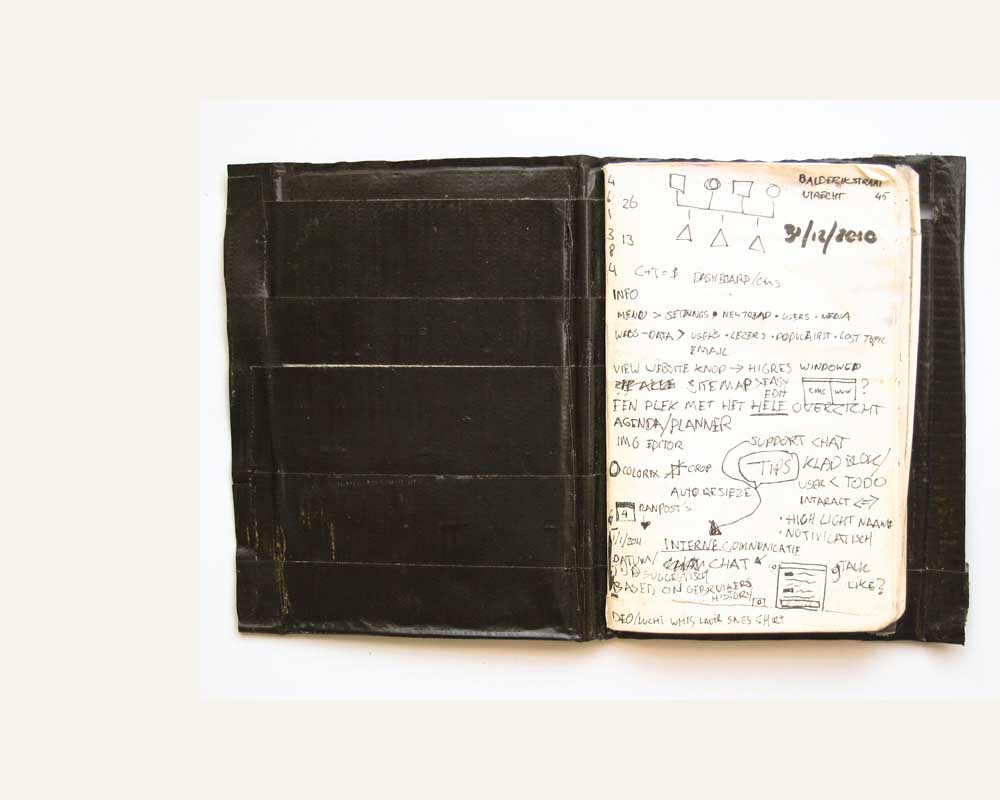 BALDERIKSTRAAT
UTRECHT 45
31/12/2010
4
6
1
3
8
4
26
13
C+T=$ DASHBOARD/CMS
INFO
MENU > SETTINGS • NEW TREAD • USERS • MEDIA
WEBS-DATA > USERS • LEZERS • POPULAIRST • LOST TOPIC
EMAIL
VIEW WEBSITE KNOP → HIGRES WINDOWED
ALLE SITEMAP > EASY
EDIT
CMS WWW ?
EEN PLEK MET HET HELE OVERZICHT
AGENDA/PLANNER
IMG EDITOR
SUPPORT CHAT
COLORIX CROP
TIPS KLADBLOK/
USER < TODO
AUTO RESIEZE
INTARACT <=>
4 RANPOST's
• HIGH LIGHT NAAM
• NOTIVICATISCH
1/1/2011
INTERNE COMMUNICATIE
DATUM/
CHAT
SUGGESTISCH
gTALK
LIKE?
BASED ON GEBRUIKERS
HISTORY
DEO/LUCHT SNES SHIRT